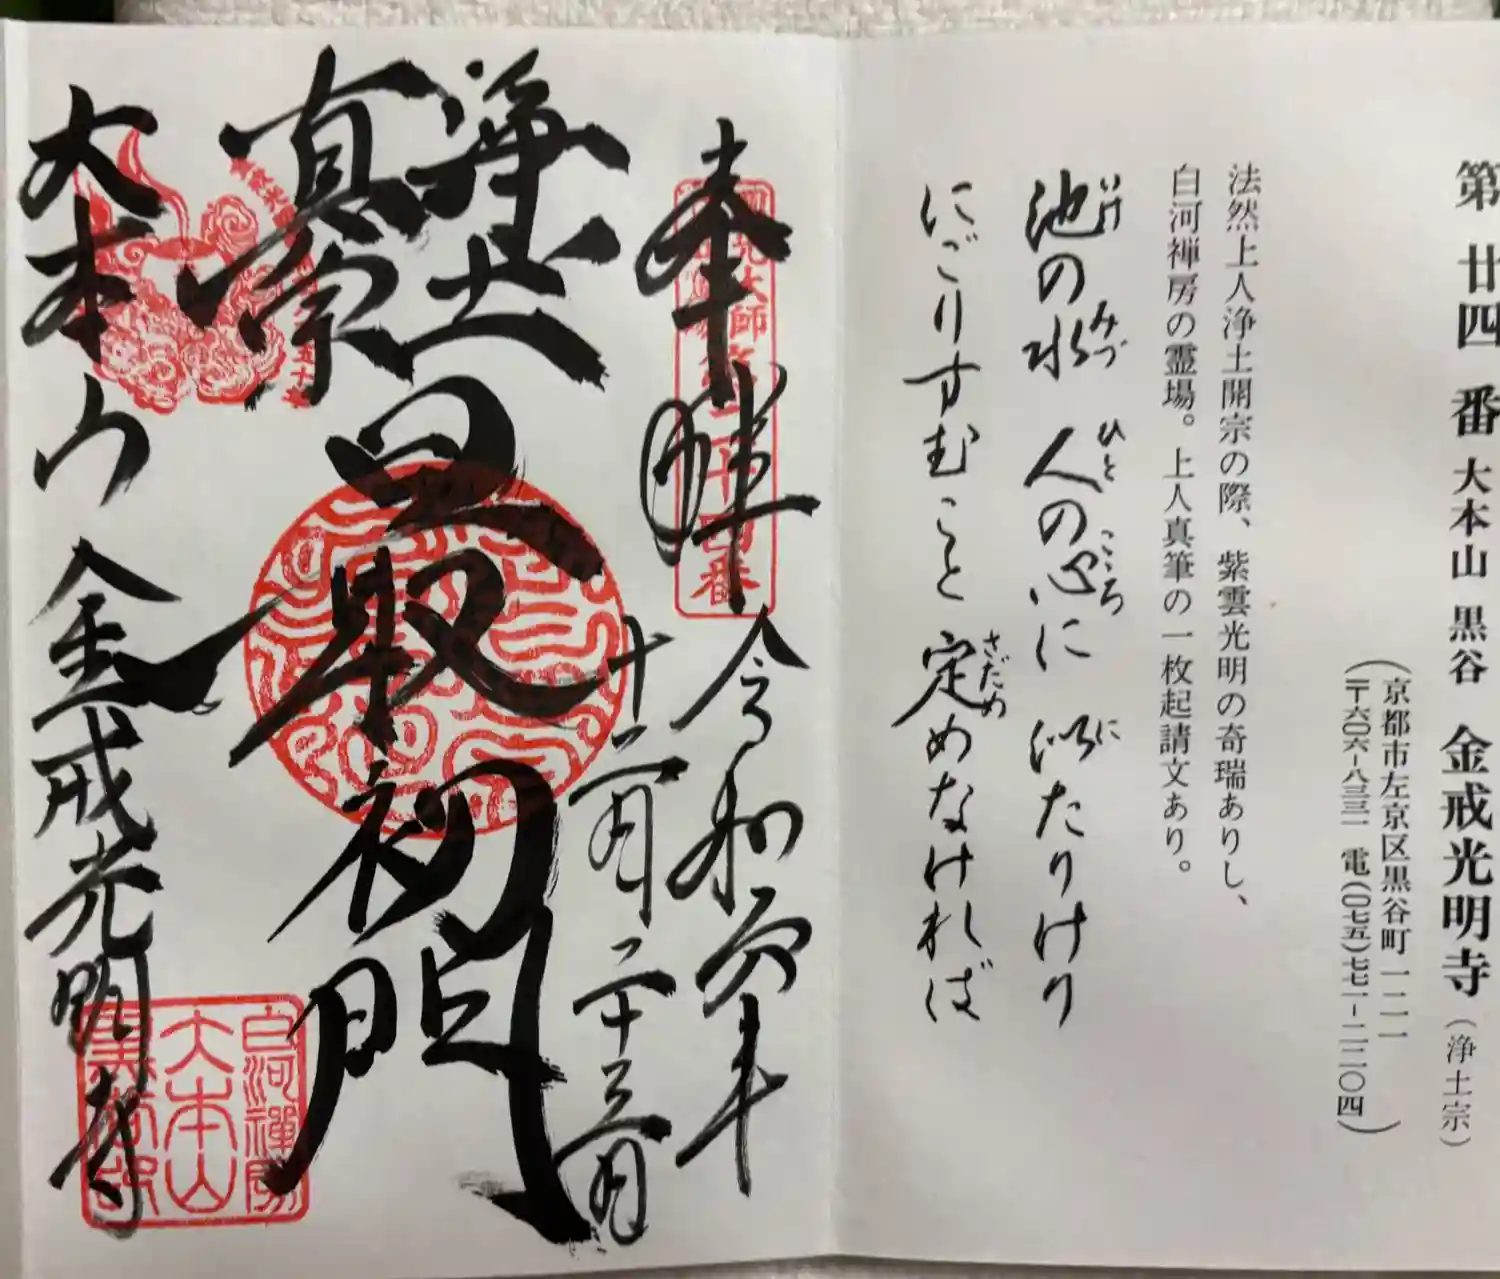 第廿四番 大本山 黒谷 金戒光明寺(浄土宗)
(京都市左京区黒谷町一二一
〒六〇六-八三三一 電(〇七五)七七一-二二〇四)
法然上人浄土開宗の際、紫雲光明の奇瑞ありし、
白河禅房の霊場。上人真筆の一枚起請文あり。
池の水 人の心に 似たりけり
いけ みづ ひと こころ に
にごりすむこと 定めなければ
さだめ
奉拝 令和四年
十二月二十三日
浄土
真宗
最初門
大本山 金戒光明寺
大師
二十四番
白河禅房
大本山